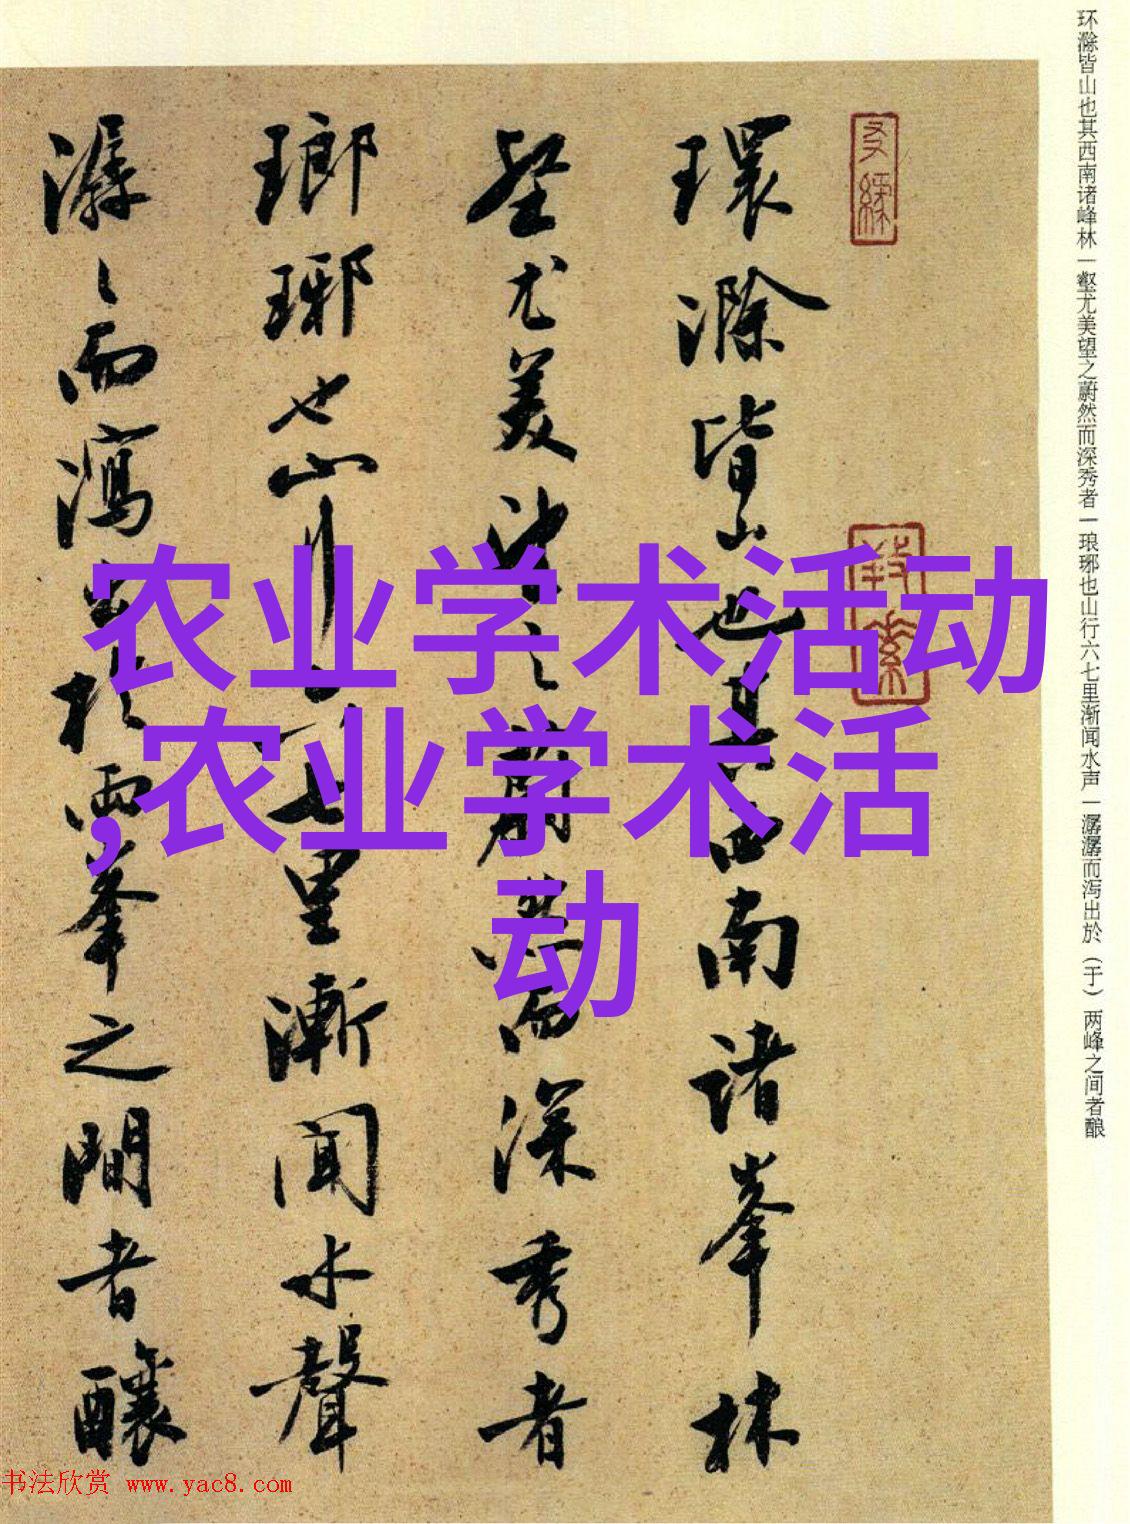 环滁皆山也其西南诸峰林一壑尤美望之蔚然而深秀者一琅琊也山行六七里渐闻水声一潺潺而泻出於（于）两峰之间者酿
環滁皆山也其西南諸峯林
壑尤美望之蔚然而深秀者
瑯琊也山行六七里漸聞水聲
潺〻而瀉出於兩峯之間者釀
农业学术活动
,农业学术活
动
书法欣赏 www.yac8.com